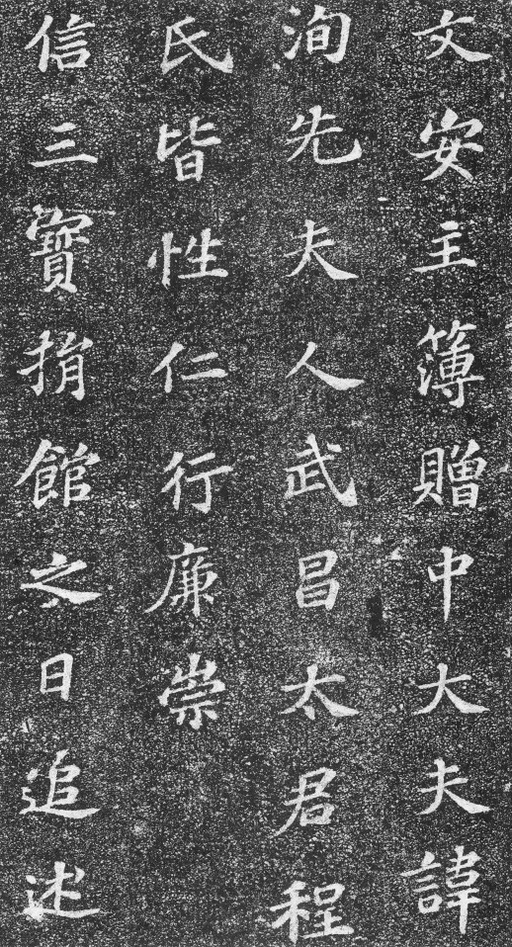 文安主簿贈中大夫諱
洵先夫人武昌太君程
氏皆性仁行廉崇
信三寶捐館之日追
述